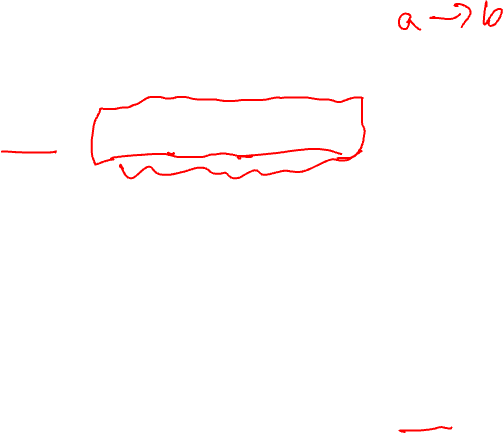 a → b